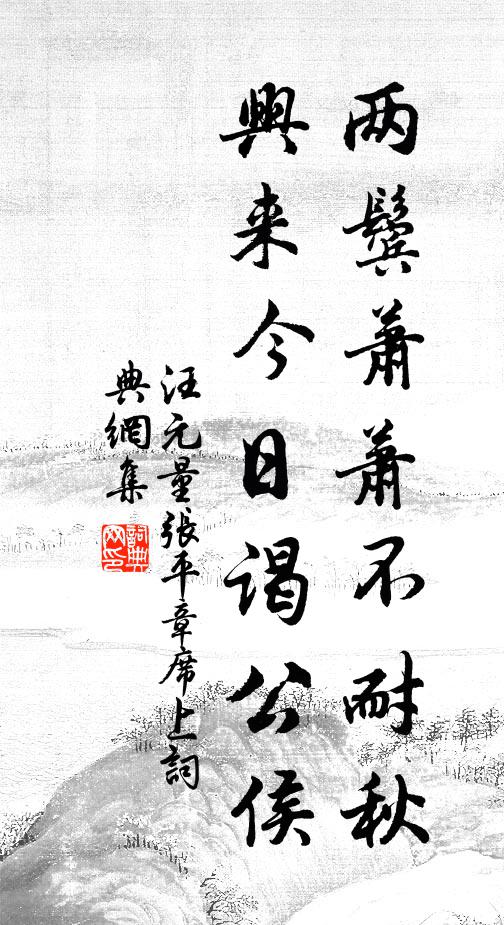 两鬓蕭蕭不耐秋
興来今日謁公侯
汪元量張平章席上詞
典網集
詞典网印